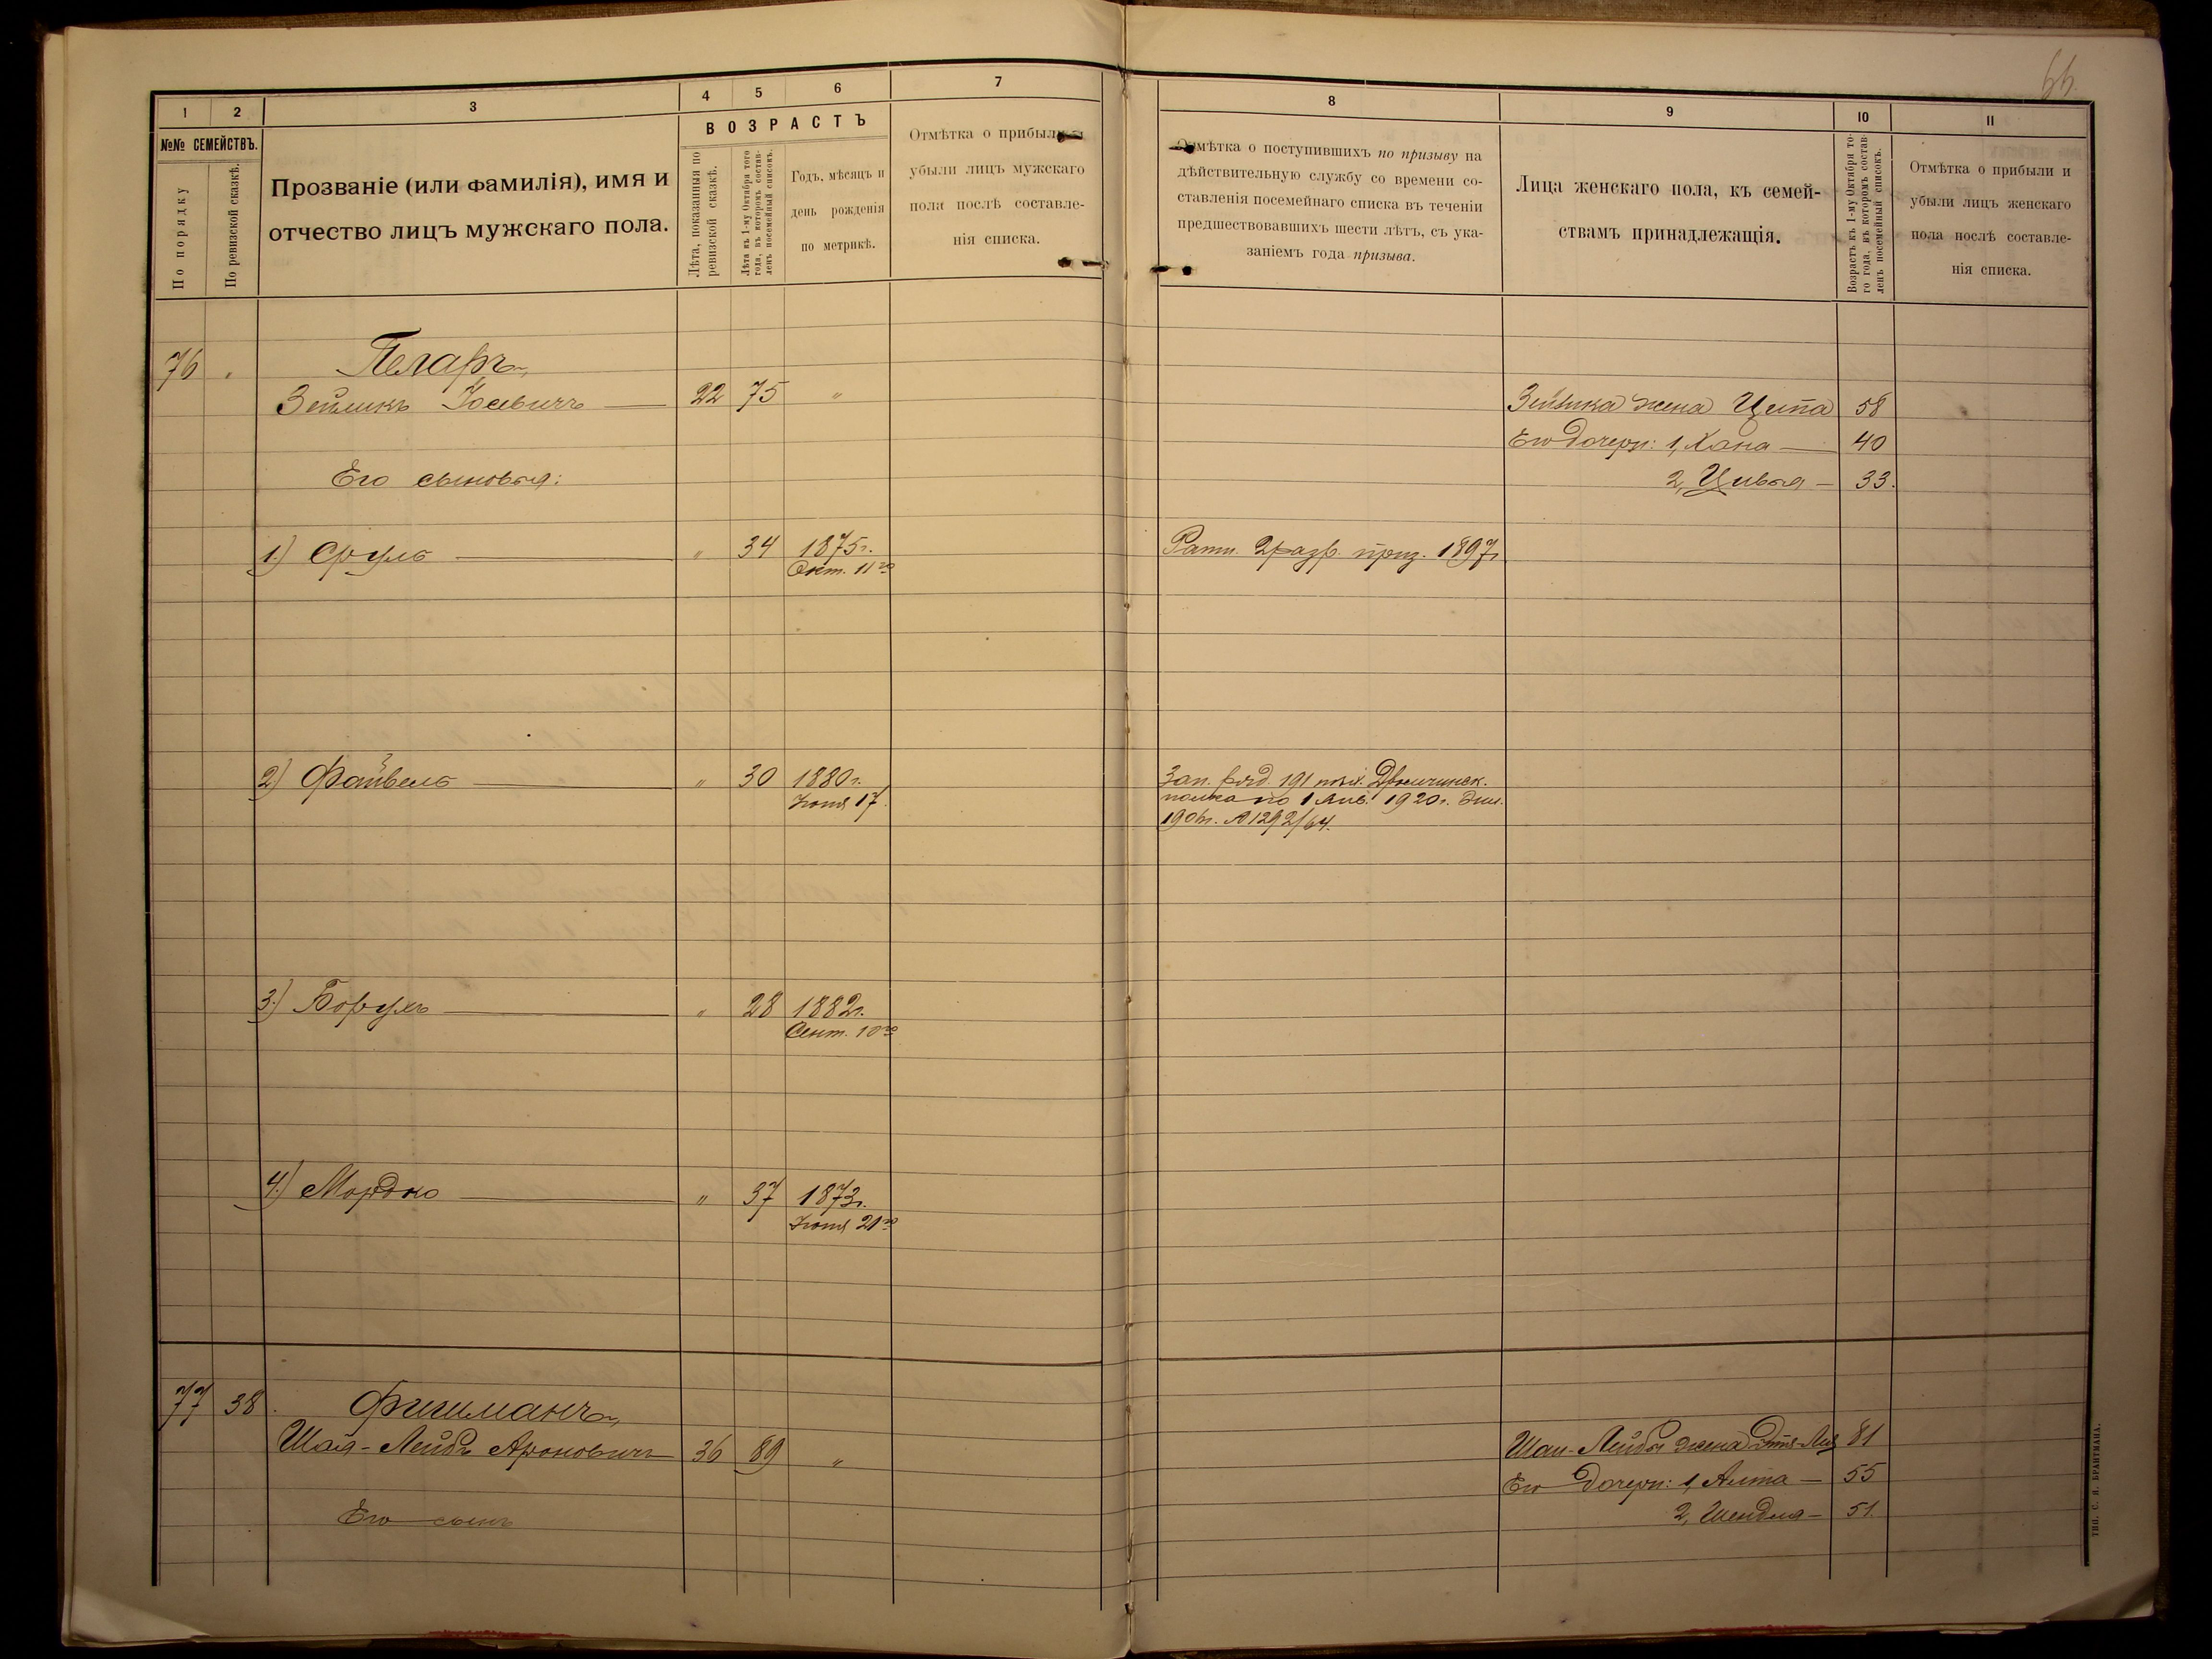 55.
1
2
3
4
5
6
7
8
9
10
11
№№ СЕМЕЙСТВЪ.
По порядку
По ревизской сказкѣ.
Прозваніе (или фамилія), имя и
отчество лицъ мужскаго пола.
ВОЗРАСТЪ
Лѣта, показанныя по
ревизской сказкѣ.
Лѣта къ 1-му Октября того
года, въ которомъ состав-
ленъ посемейный списокъ.
Годъ, мѣсяцъ и
день рожденія
по метрикѣ.
Отмѣтка о прибыли и
убыли лицъ мужскаго
пола послѣ составле-
нія списка.
Отмѣтка о поступившихъ по призыву на
дѣйствительную службу со времени со-
ставленія посемейнаго списка въ теченіи
предшествовавшихъ шести лѣтъ, съ ука-
заніемъ года призыва.
Лица женскаго пола, къ семей-
ствамъ принадлежащія.
Возрастъ къ 1-му Октября то-
го года, въ которомъ состав-
ленъ посемейный списокъ.
Отмѣтка о прибыли и
убыли лицъ женскаго
пола послѣ составле-
нія списка.
76 "
Пекарь,
Зейликъ Іосевичъ — 22 75 "
Зейлика жена Ципа 58
Его дочери: 1, Хана — 40
Его сыновья:
2, Цивья — 33.
1.) Сруль — " 34 1875г.
Окт. 11го
Ратн. 2 разр. приз. 1897г.
2) Файвель — " 30 1880г.
Іюня 17.
Зап. ряд. 191 пѣх.
полка по 1 Янв. 1920г.
1906г. 1292/64.
3.) Борухъ — " 28 1882г.
Сент. 10го
4.) Мордко — " 37 1873г.
Іюня 21го
77 38.
Фишманъ,
Шая-Лейбъ Ароновичъ 36 89 "
Шаи-Лейбы жена 81
Его дочери: 1, — 55
Его сынъ
2, Шейдля — 51.
ТИП. С. Я. БРАНТМАНА.